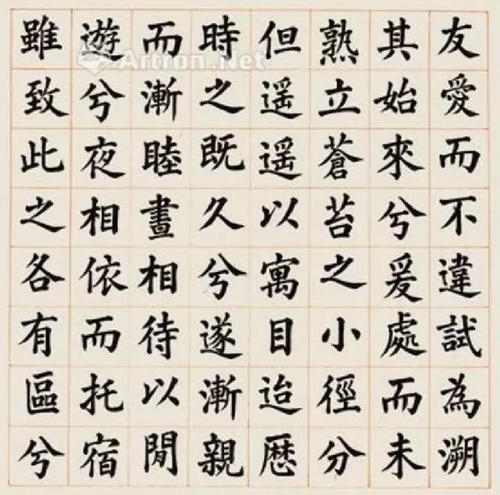 友愛而不違試為溯
其始來兮爰處而未
熟立蒼苔之小徑分
但遥遥以寓目迨厯
時之既久兮遂漸親
而漸睦晝相待以閒
遊兮夜相依而托宿
雖致此之各有區兮
Artron.Net